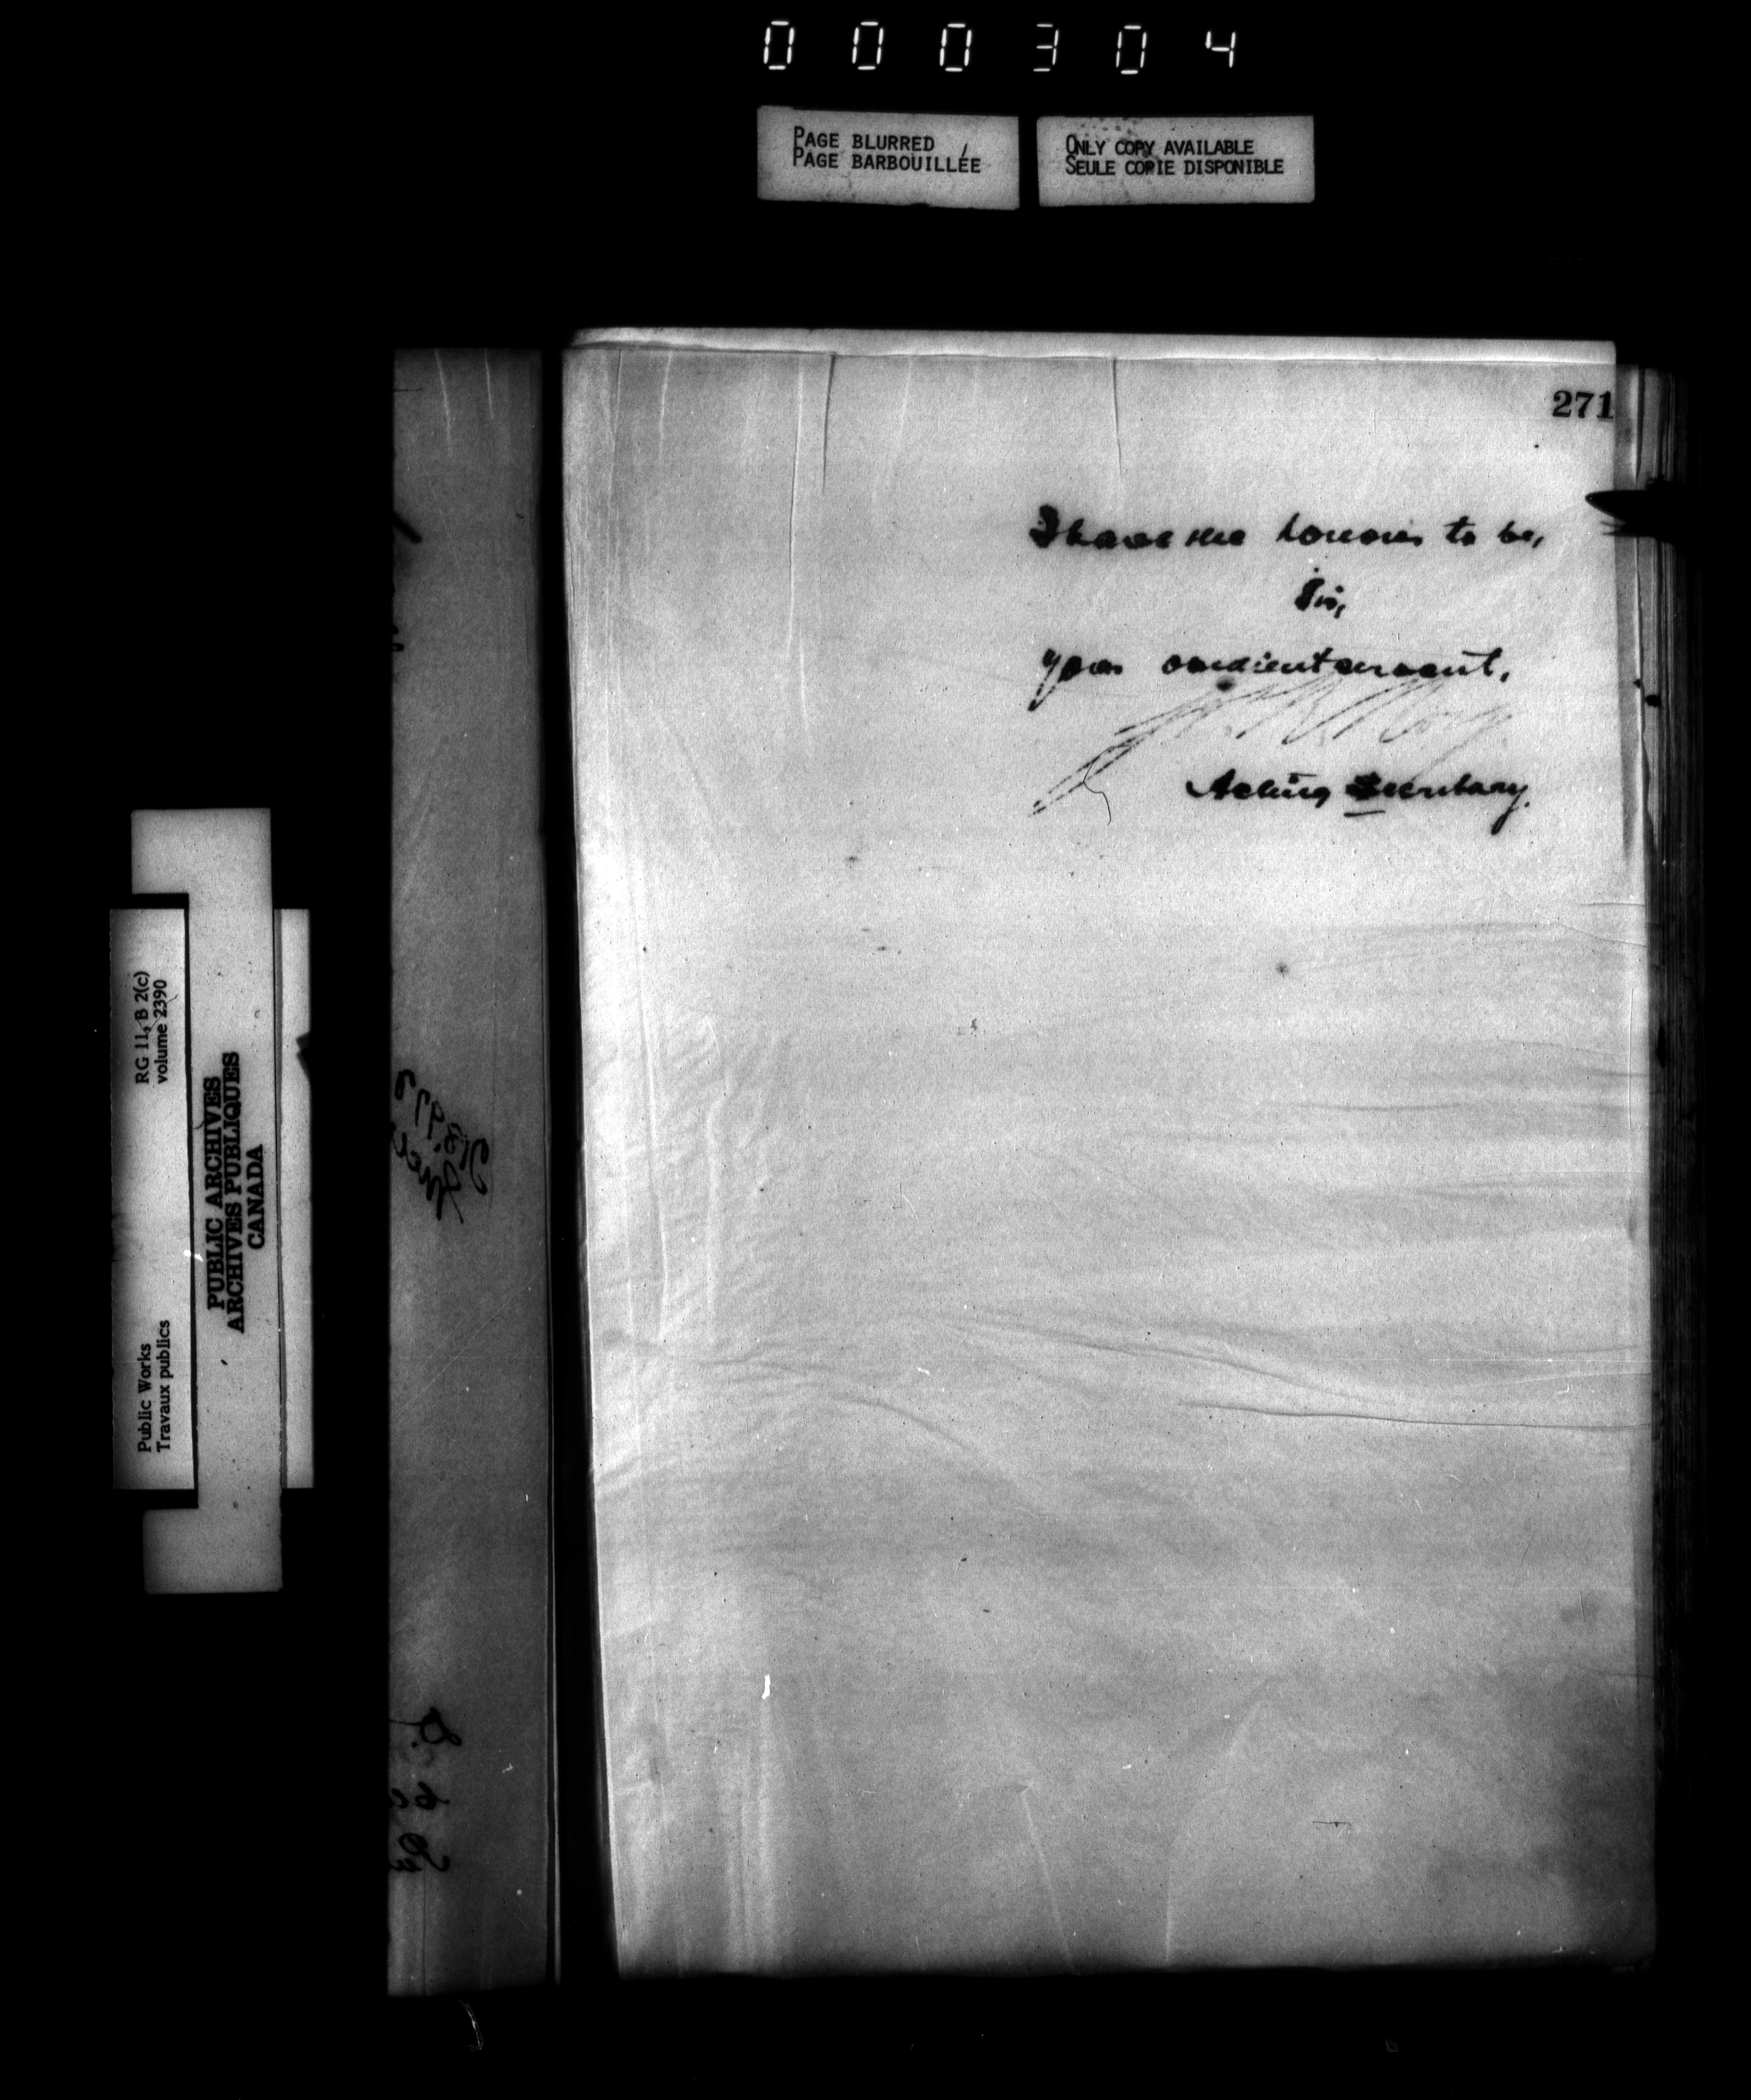 000304
PAGE BLURRED
PAGE BARBOUILLÉE
ONLY COPY AVAILABLE
SEULE COPIE DISPONIBLE
271
I have the honour to be,
Sir,
your obedient servant,
Acting Secretary.
RG 11, B 2(c)
volume 2390
Public Works
Travaux publics
PUBLIC ARCHIVES
ARCHIVES PUBLIQUES
CANADA